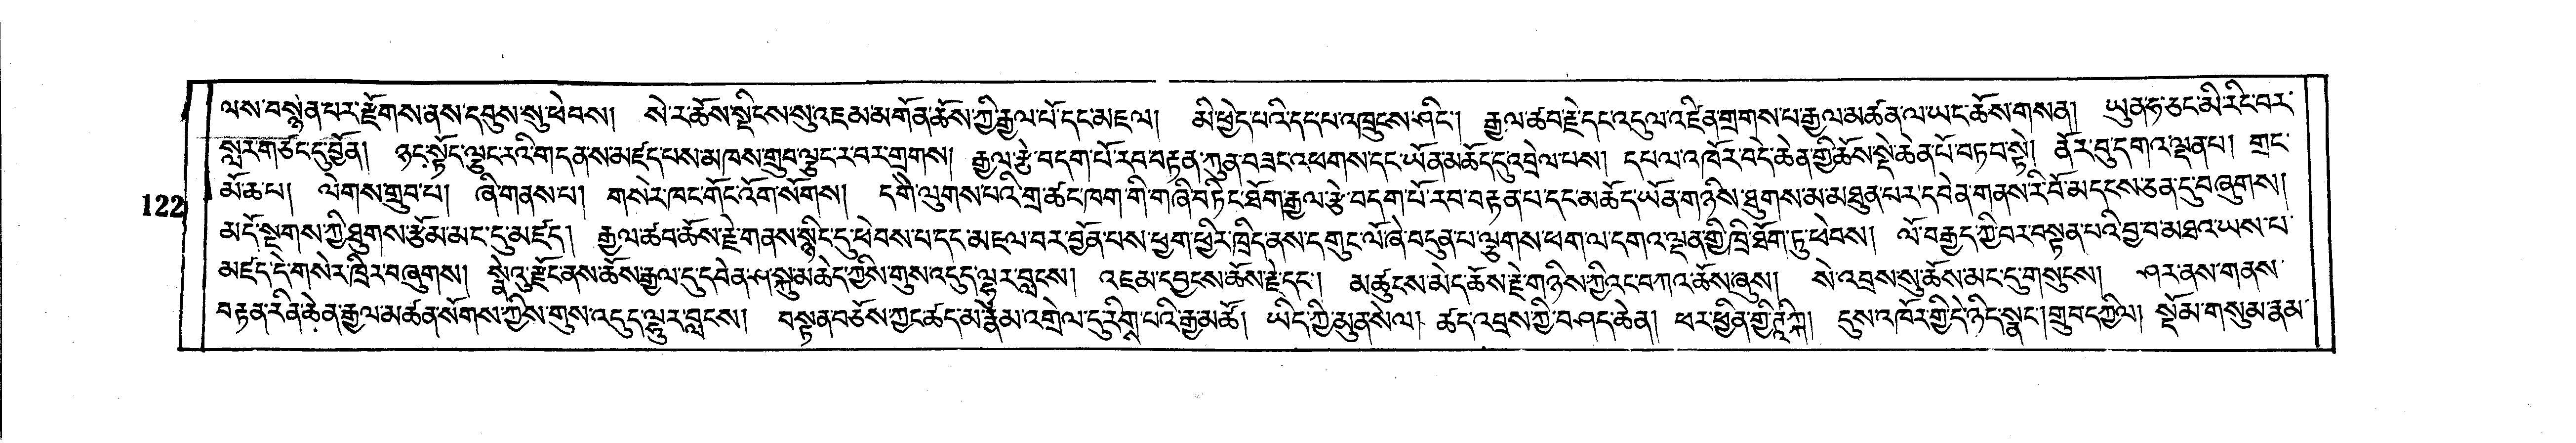 ལས་བསྙེན་པར་རྫོགས་ནས་དབུས་སུ་ཕེབས། སེ་ར་ཆོས་སྡིངས་སུ་འཇམ་མགོན་ཆོས་ཀྱི་རྒྱལ་པོ་དང་མཇལ། མི་ཕྱེད་པའི་དད་པ་འཁྲུངས་ཤིང་། རྒྱལ་ཚབ་རྗེ་དང་འདུལ་འཛིན་གྲགས་པ་རྒྱལ་མཚན་ལ་ཡང་ཆོས་གསན། ཡུན་ཧ་ཅང་མི་རིང་བར་
སླར་གཙང་དུ་བྱོན། ཉང་སྟོད་ལྕང་རའི་གདན་ས་མཛད་པས་མཁས་གྲུབ་ལྕང་ར་བར་གྲགས། རྒྱལ་རྩེ་བདག་པོ་རབ་བརྟན་ཀུན་བཟང་འཕགས་དང་ཡོན་མཆོད་དུ་འབྲེལ་པས། དཔལ་འཁོར་བདེ་ཆེན་གྱི་ཆོས་སྡེ་ཆེན་པོ་བཏབ་སྟེ། ནོར་བུ་དགའ་ལྡན་པ། གྲང་
མོ་ཆ་པ། ལེགས་གྲུབ་པ། ཞི་གནས་པ། གསེར་ཁང་གོང་འོག་སོགས། དགེ་ལུགས་པའི་གྲྭ་ཚང་ཁག་གི་གཞི་བཏིང་ཐོག་རྒྱལ་རྩེ་བདག་པོ་རབ་བརྟན་པ་དང་མཆོད་ཡོན་གཉིས་ཐུགས་མ་མཐུན་པར་དབེན་གནས་རི་བོ་མདངས་ཅན་དུ་བཞུགས།
122 མདོ་སྔགས་ཀྱི་ཐུགས་རྩོམ་མང་དུ་མཛད། རྒྱལ་ཚབ་ཆོས་རྗེ་གནས་སྙིང་དུ་ཕེབས་པ་དང་མཇལ་བར་བྱོན་པས་ཕྱག་ཕྱིར་ཁྲིད་ནས་དགུང་ལོ་ཞེ་བདུན་པ་ལྕགས་ཕག་ལ་དགའ་ལྡན་གྱི་ཁྲི་ཐོག་ཏུ་ཕེབས། ལོ་བརྒྱད་ཀྱི་བར་བསྟན་པའི་བྱ་བ་མཐའ་ཡས་པ་
མཛད་དེ་གསེར་ཁྲིར་བཞུགས། སྣེའུ་རྫོང་ནས་ཆོས་རྒྱལ་དུ་དབེན་ཤ་སྐུ་མཆེད་ཀྱིས་གུས་འདུད་ལྷུར་བླངས། འཇམ་དབྱངས་ཆོས་རྗེ་དང་། མཚུངས་མེད་ཆོས་རྗེ་གཉིས་ཀྱིའང་བཀའ་ཆོས་ཞུས། སེ་འབྲས་སུ་ཆོས་མང་དུ་གསུངས། ཤར་ནས་གནས་
བརྟན་རིན་ཆེན་རྒྱལ་མཚན་སོགས་ཀྱིས་གུས་འདུད་ལྷུར་བླངས། བསྟན་བཅོས་ཀྱང་ཚད་མ་རྣམ་འགྲེལ་དུ་རིགས་པའི་རྒྱ་མཚོ། ཡིད་ཀྱི་མུན་སེལ། ཚད་འབྲས་ཀྱི་བཤད་ཆེན། ཕར་ཕྱིན་གྱི་ཊཱིཀྐ། དུས་འཁོར་གྱི་དེ་ཉིད་སྣང་། གྲུབ་དཀྱིལ། སྡོམ་གསུམ་རྣམ་